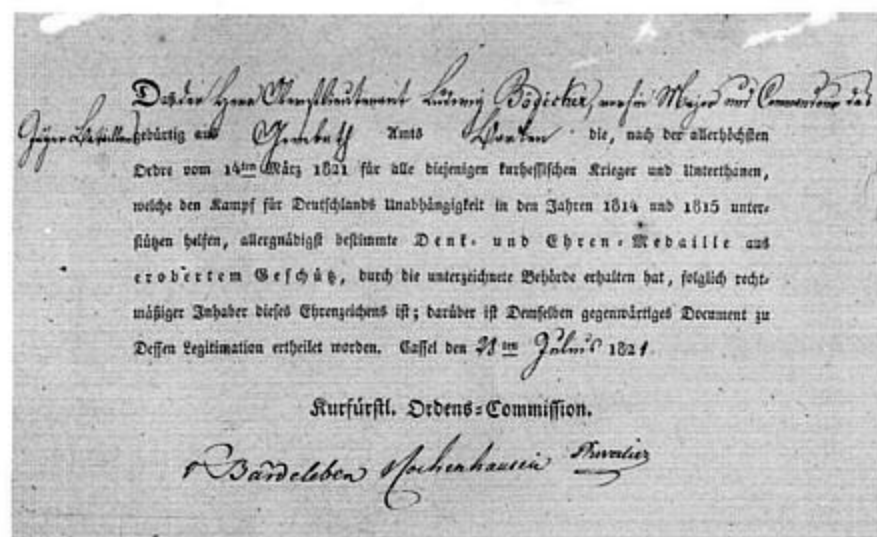 Daß der Herr Oberstlieutenant Ludwig Bödicker, vorhin Major und Commandeur des
Jäger Bataillons gebürtig aus Amts die, nach der allerhöchsten
Ordre vom 14ten März 1821 für alle diejenigen kurhessischen Krieger und Unterthanen,
welche den Kampf für Deutschlands Unabhängigkeit in den Jahren 1814 und 1815 unter=
stützen helfen, allergnädigst bestimmte Denk- und Ehren-Medaille aus
erobertem Geschütz, durch die unterzeichnete Behörde erhalten hat, folglich recht=
mäßiger Inhaber dieses Ehrenzeichens ist; darüber ist Demselben gegenwärtiges Document zu
Dessen Legitimation ertheilet worden. Cassel den 28ten Julius 1821.
Kurfürstl. Ordens=Commission.
v Bardeleben Kochenhausen